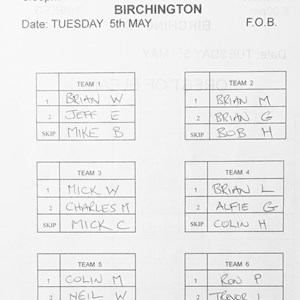 BIRCHINGTON
Date: TUESDAY 5th MAY F.O.B.
TEAM 1
1 BRIAN W
2 JEFF E
SKIP MIKE B
TEAM 2
1 BRIAN M
2 BRIAN G
SKIP BOB H
TEAM 3
1 MICK W
2 CHARLES M
SKIP MICK C
TEAM 4
1 BRIAN L
2 ALFIE G
SKIP COLIN H
TEAM 5
1 COLIN M
2 NEIL W
TEAM 6
1 RON P
2 TREVOR